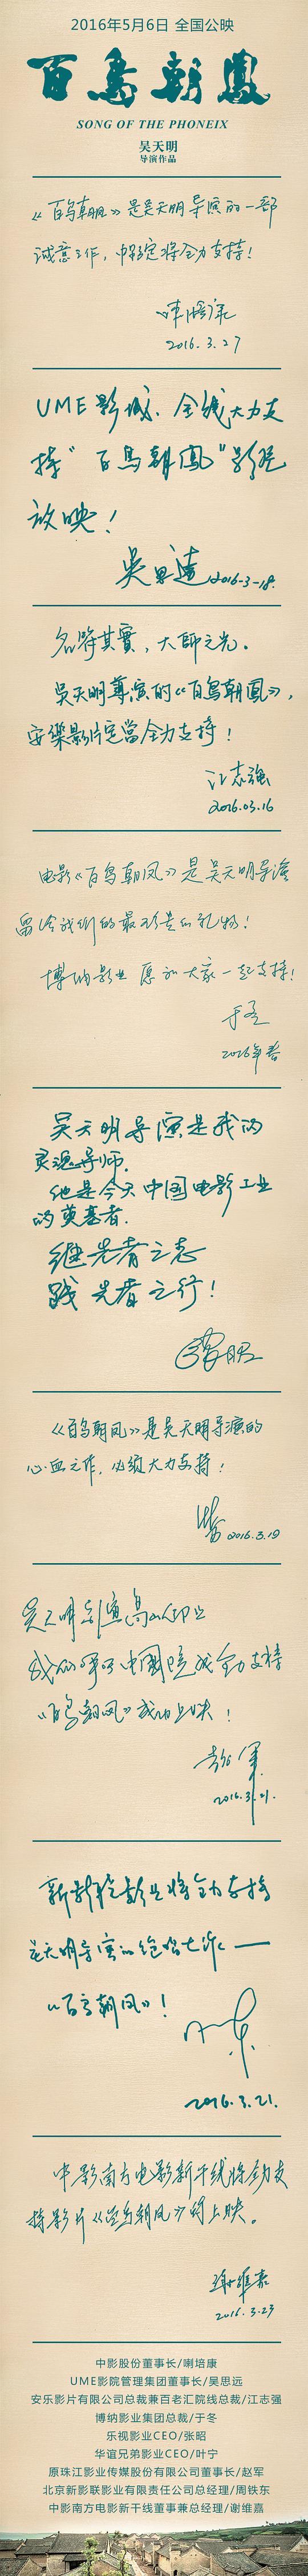 2016年5月6日 全国公映
百鸟朝鳳
SONG OF THE PHONEIX
吴天明
导演作品
《百鸟朝凤》是吴天明导演的一部
诚意之作，中影定将全力支持！
喇培康
2016.3.27
UME影城、全线大力支
持“百鸟朝鳳”影片
放映！
吴思遠 2016-3-18.
名符其實，大師之光。
吴天明導演的《百鸟朝鳳》，
安樂影片定當全力支持！
江志强
2016.03.16
电影《百鸟朝凤》是吴天明导演
留给我们的最珍贵的礼物！
博纳影业 愿和大家一起支持！
于冬
2016年春
吴天明导演是我的
灵魂导师。
他是今天中国电影工业
的奠基者.
继先者之志
践先者之行！
张昭
《百鸟朝凤》是吴天明导演的
心血之作，必须大力支持！
叶宁 2016.3.19
吴天明导演高山仰止
我们呼吁中国院线全力支持
“百鸟朝凤”成功上映！
赵军
2016.3.21.
新影联影业将全力支持
吴天明导演的绝唱之作——
“百鸟朝凤”！
2016.3.21.
中影南方电影新干线将全力支
持影片《百鸟朝凤》的上映。
谢维嘉
2016.3.23
中影股份董事长/喇培康
UME影院管理集团董事长/吴思远
安乐影片有限公司总裁兼百老汇院线总裁/江志强
博纳影业集团总裁/于冬
乐视影业CEO/张昭
华谊兄弟影业CEO/叶宁
原珠江影业传媒股份有限公司董事长/赵军
北京新影联影业有限责任公司总经理/周铁东
中影南方电影新干线董事兼总经理/谢维嘉